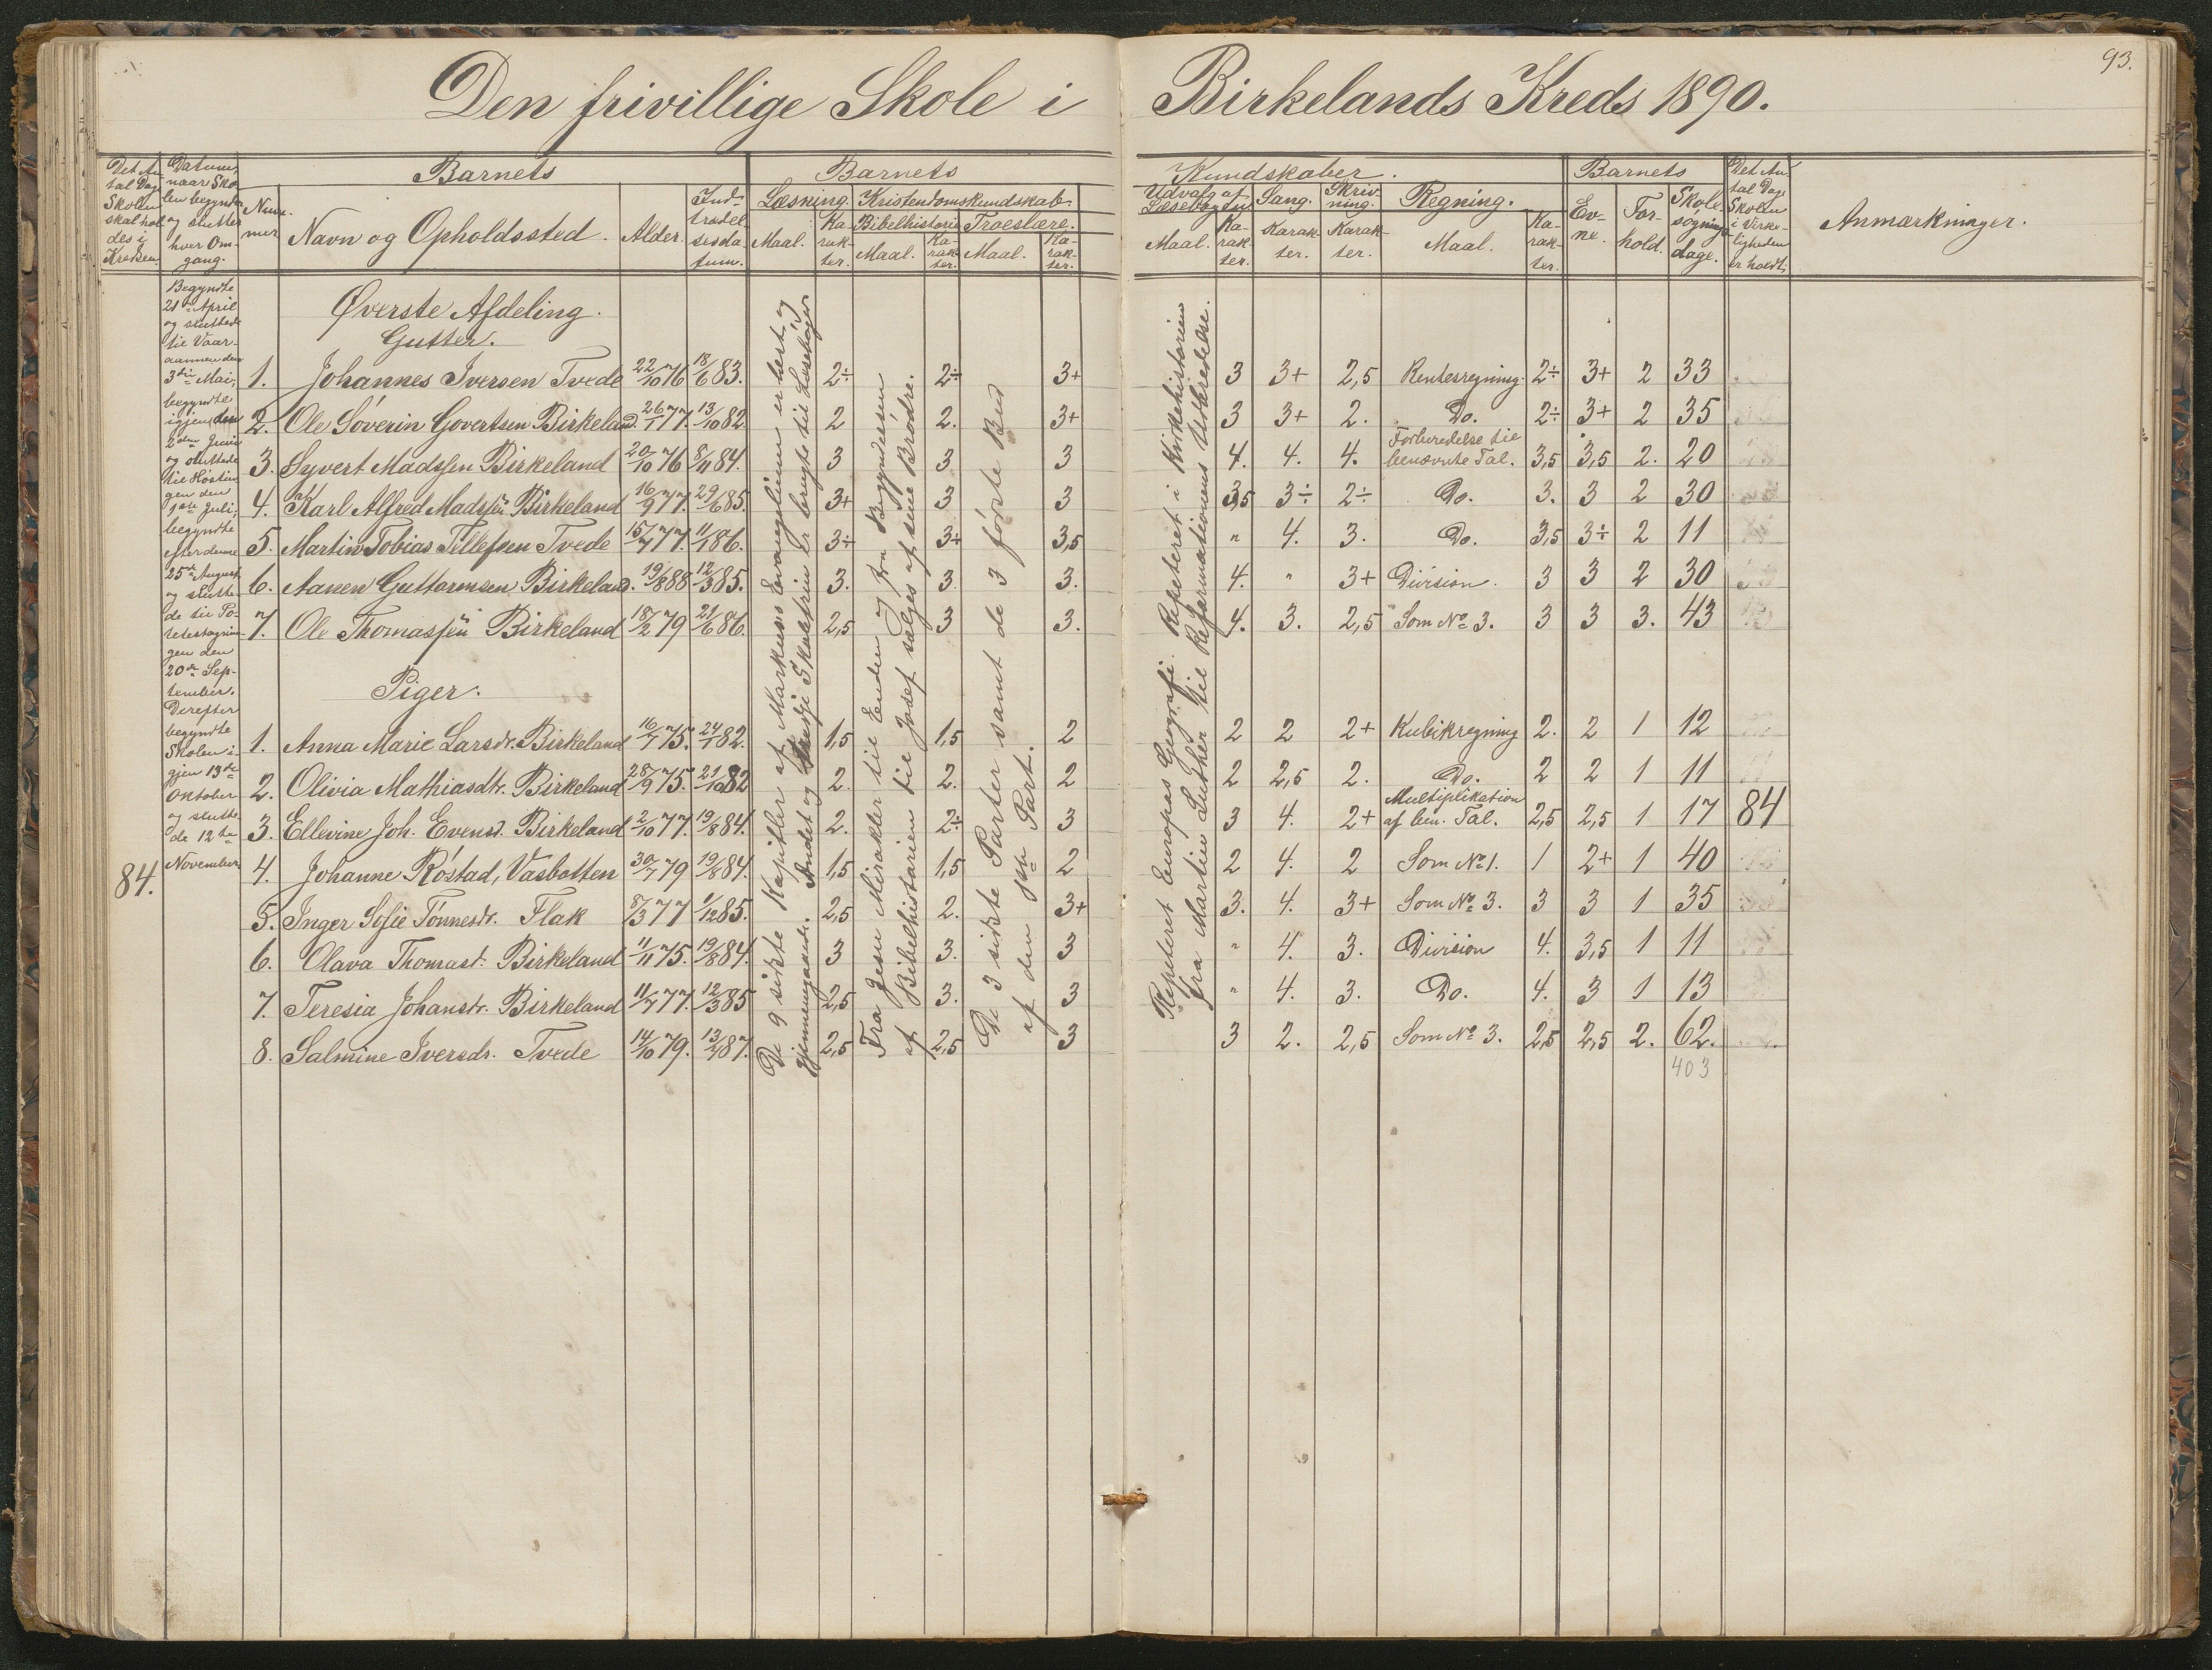 93.
Den frivillige Skole i Birkelands Kreds 1890.
Det An-
tal Dage
Skolen
skal hol-
des i
Kredsen.
Datum,
naar Sko-
len begynder
og slutter
hver Om-
gang.
Barnets
Num-
mer
Navn og Opholdssted.
Alder.
Ind-
trædel-
sesda-
tum.
Barnets
Læsning. Kristendomskundskab.
Maal.
Ka-
rak-
ter.
Bibelhistorie Troeslære.
Maal.
Ka-
rak-
ter.
Maal.
Ka-
rak-
ter.
Kundskaber.
Udvalg af
Læsebogen
Maal.
Ka-
rak-
ter.
Sang.
Karak-
ter.
Skriv-
ning.
Karak-
ter.
Regning.
Maal.
Ka-
rak-
ter.
Barnets
Ev-
ne.
For-
hold.
Skole-
søgnings-
dage.
Det An-
tal Dage
Skolen
i Virke-
ligheden
er holdt.
Anmærkninger.
84.
Begyndte
21de April
og sluttede
til Vaar-
aannen den
3die Mai;
begyndte
igjen den
2den Juni
og sluttede
til Høstin-
gen den
1ste Juli;
begyndte
efter denne
25de August
og slutte-
de til Po-
tetestagnin-
gen den
20de Sep-
tember.
Derefter
begyndte
Skolen i-
gjen 13de
Oktober
og slutte-
de 12te
November
Øverste Afdeling.
Gutter.
1. Johannes Iversen Tvede 22/10 76 18/6 83. 2÷ 2÷ 3+ 3 3+ 2,5 Rentesregning. 2÷ 3+ 2 33
2. Ole Søverin Govertsen Birkeland. 26/1 77. 13/10 82. 2 2. 3+ 3 3+ 2. Do. 2÷ 3+ 2 35
3. Syvert Madssen Birkeland 20/10 76 8/11 84. 3 3 3 4. 4. 4. Forberedelse til
benævnte Tal. 3,5 3,5 2. 20
4. Karl Alfred Madssen Birkeland 16/9 77. 29/6 85. 3+ 3 3 3,5 3÷ 2÷ Do. 3. 3 2 30
5. Martin Tobias Tellefsen Tvede 15/7 77. 11/1 86. 3÷ 3+ 3,5 " 4. 3. Do. 3,5 3÷ 2 11
6. Aanen Guttormsen Birkeland. 19/8 88 12/3 85. 3. 3. 3. 4. " 3+ Division. 3 3 2 30
7. Ole Thomassen Birkeland 18/2 79 21/6 86. 2,5 3 3. 4. 3. 2,5 Som No 3. 3 3 3. 43
Piger.
1. Anna Marie Larsdr. Birkeland 16/7 75. 24/1 82. 1,5 1,5 2 2 2 2+ Kubikregning 2. 2 1 12
2. Olivia Mathiasdtr. Birkeland 28/9 75. 21/10 82 2. 2. 2 2 2,5 2. Do. 2 2 1 11
3. Ellevine Joh. Evensd. Birkeland 2/10 77. 19/8 84. 2. 2÷ 3 3 4. 2+ Multiplikation
af ben. Tal. 2,5 2,5 1 17 84
4. Johanne Røstad, Vasbotten 30/7 79 19/8 84. 1,5 1,5 2 2 4. 2 Som No 1. 1 2+ 1 40
5. Inger Sofie Tønnesdr. Flak 8/3 77 1/12 85. 2,5 2. 3+ 3. 4. 3+ Som No 3. 3 3 1 35
6. Olava Thomast. Birkeland 11/11 75. 19/8 84. 3 3. 3 " 4. 3. Division 4. 3,5 1 11
7. Teresia Johanstr. Birkeland 11/7 77. 12/3 85 2,5 3. 3 " 4. 3. Do. 4. 3 1 13
8. Salmine Iversdr. Tvede 14/10 79. 13/4 87. 2,5 2,5 3 3 2. 2,5 Som No 3. 2,5 2,5 2. 62.
403
De 9 sidste Kapitler af Markus's Evangelium er læst og
gjennemgaaede. Andet og tredje Skoletrin er brugte til Læsebøger
Fra Jesu Mirakler til Enden og fra Begyndelsen
af Bibelhistorien til Josef sælges af sine Brødre.
De 3 sidste Parter samt de 3 første Bud
af den 1ste Part.
Repeteret Europas Geografi. Repeteret i Kirkehistorien
fra Martin Luther til Reformationens Udbredelse.